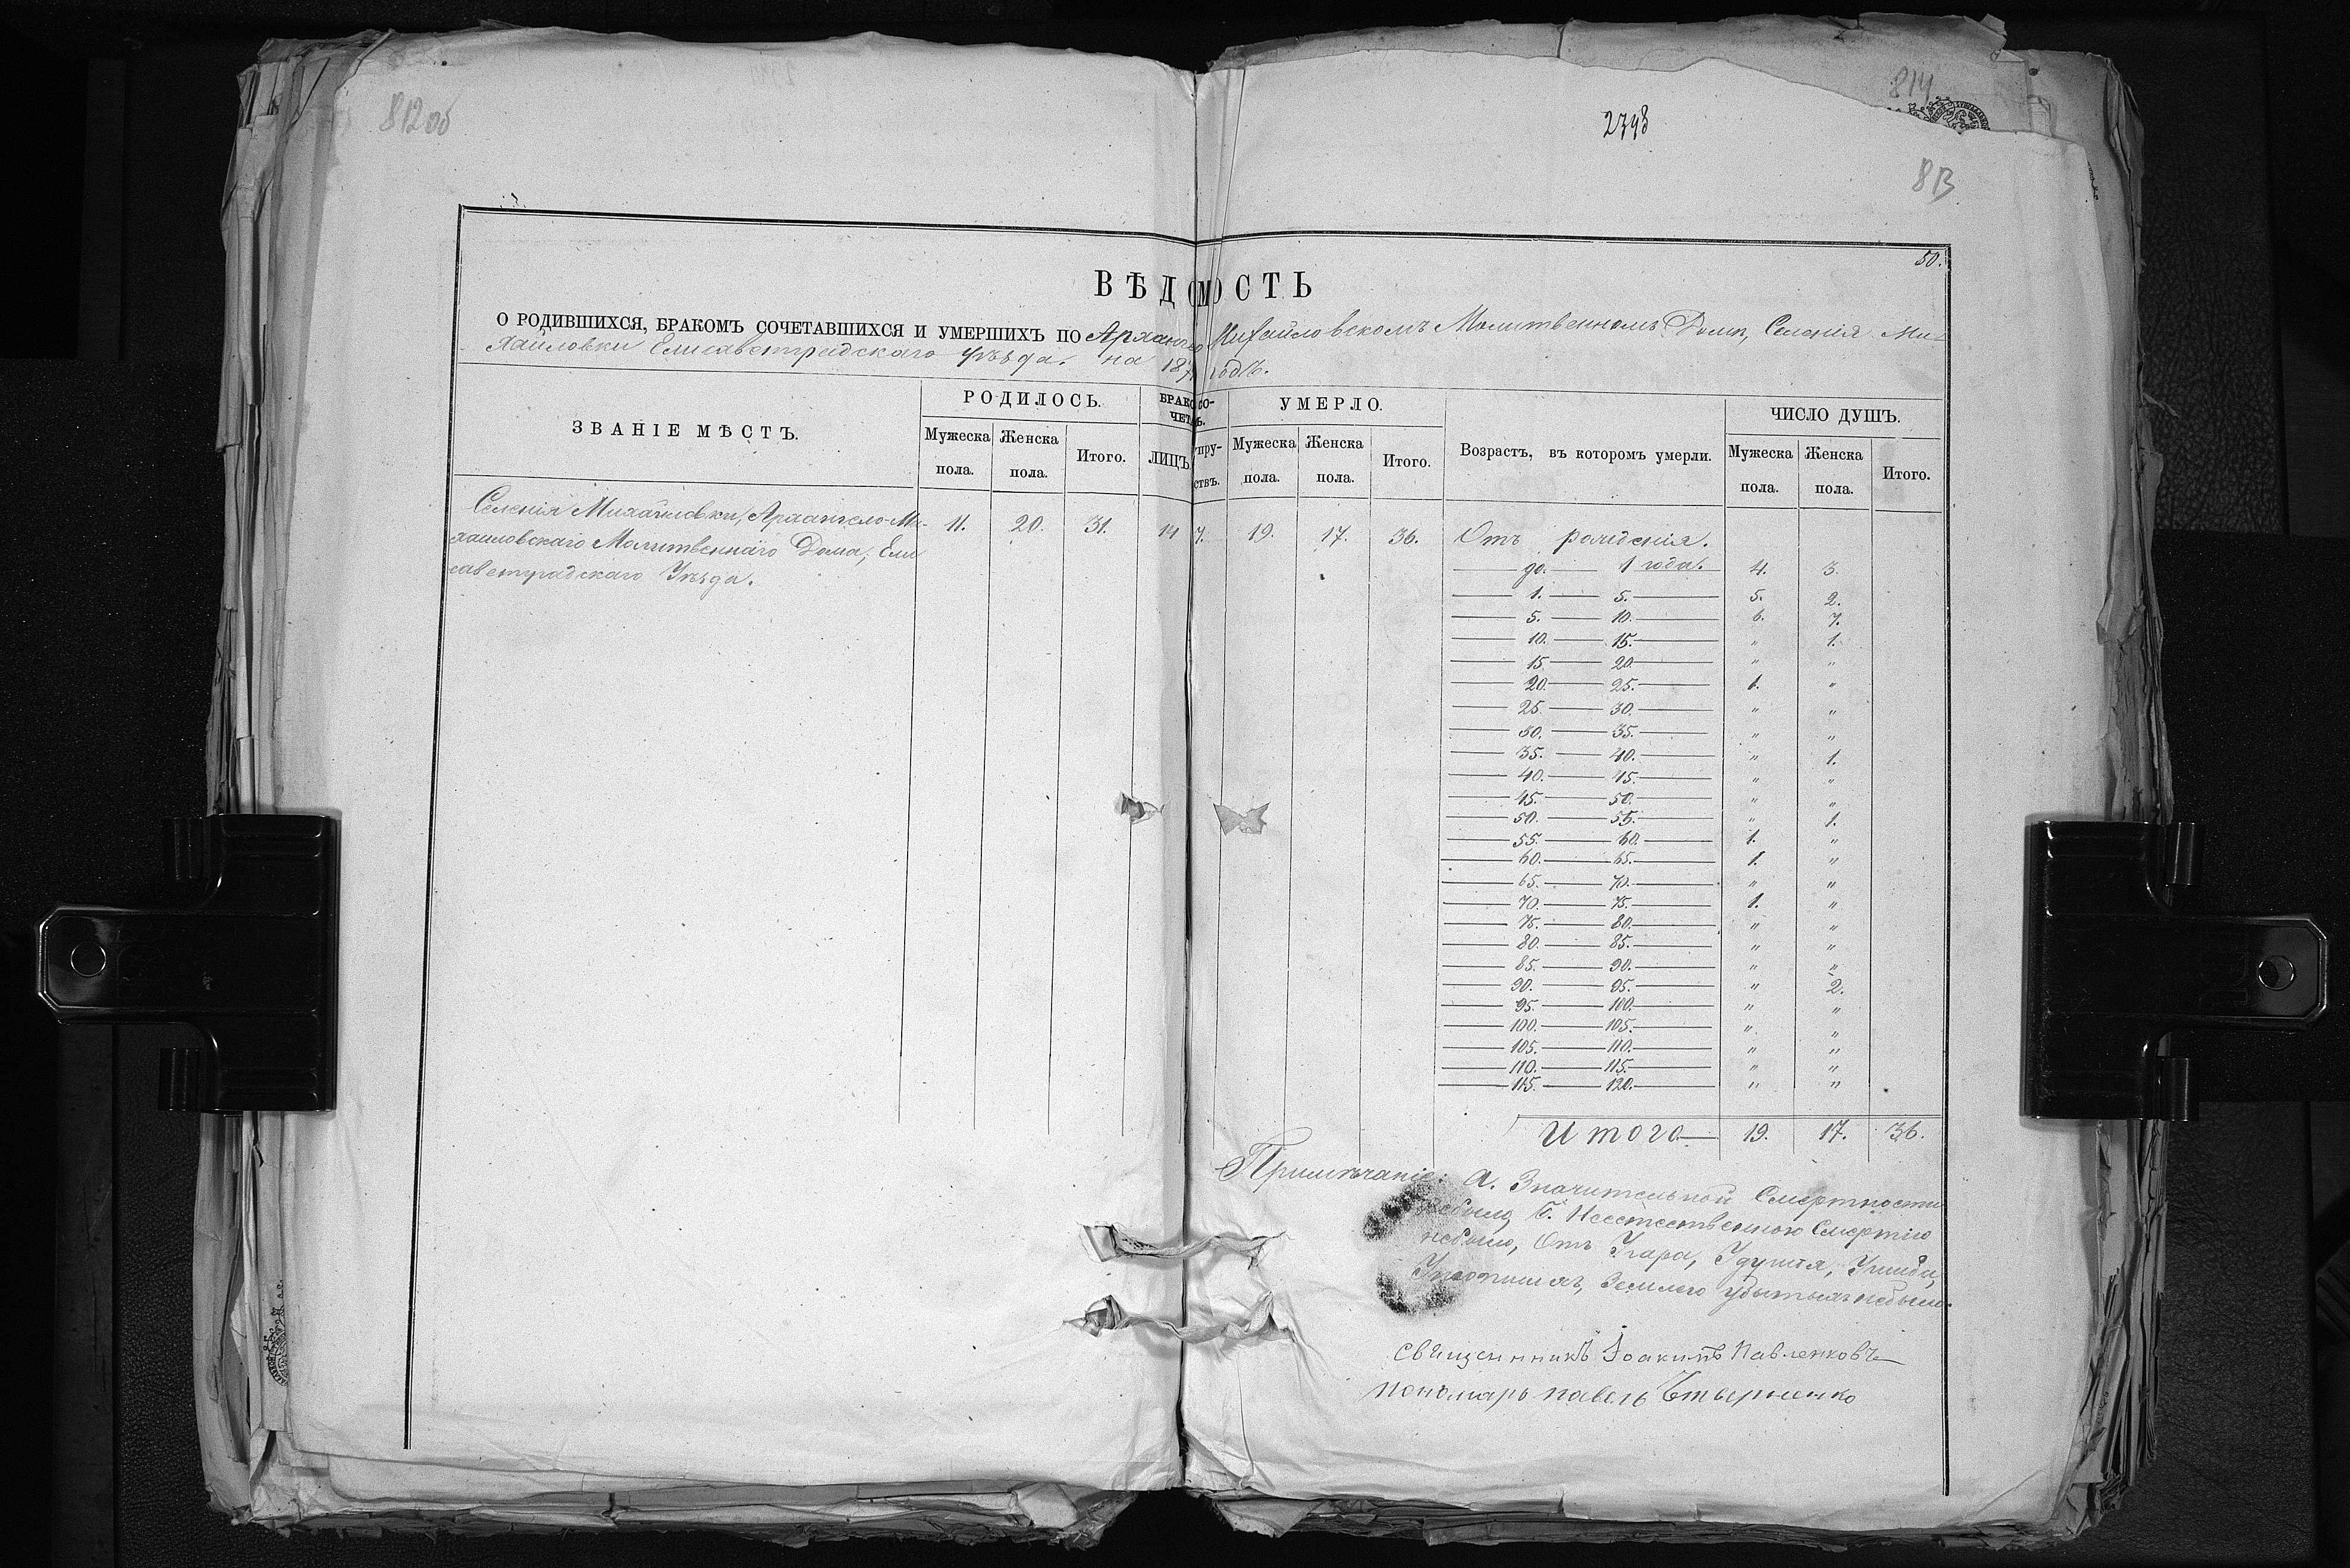 812 об
2398
814
813
50.
ВѢДОМОСТЬ
О РОДИВШИХСЯ, БРАКОМЪ СОЧЕТАВШИХСЯ И УМЕРШИХЪ ПО Архангело Михайловскомъ Молитвенномъ Домѣ, Селенія Ми-
хайловки Елисаветградскаго уѣзда. на 187 годъ.
ЗВАНІЕ МѢСТЪ.
РОДИЛОСЬ.
БРАКОСО-
ЧЕТ Ъ.
УМЕРЛО.
Возрастъ, въ которомъ умерли.
ЧИСЛО ДУШЪ.
Мужеска пола. Женска пола. Итого. ЛИЦЪ. пру- ствъ. Мужеска пола. Женска пола. Итого. Мужеска пола. Женска пола. Итого.
Селенія Михайловки, Архангело-Ми- 11. 20. 31. 14 7. 19. 17. 36. Отъ рожденія.
хаиловскаго Молитвеннаго Дома, Ели
саветградскаго Уѣзда.
до. 1 года. 4. 3.
1. 5. 5. 2.
5. 10. 6. 7.
10. 15. " 1.
15 20. " "
20. 25. 1. "
25 30. " "
30. 35. " "
35. 40. " 1.
40. 45. " "
45. 50. " "
50. 55. " 1.
55. 60. 1. "
60. 65. 1. "
65. 70. " "
70. 75. 1. "
75. 80. " "
80. 85. " "
85. 90. " "
90. 95. " 2.
95. 100. " "
100. 105. " "
105. 110. " "
110. 115. " "
115. 120. " "
Итого 19. 17. 36.
Примѣчаніе: а. Значительной Смертности
небыло, б. Неестественною Смертію
небыло, Отъ Угара, Удушія, Ушиба,
Землею убытыхъ небыло.
священникъ Іоакимъ Павленковъ
пономарь павелъ